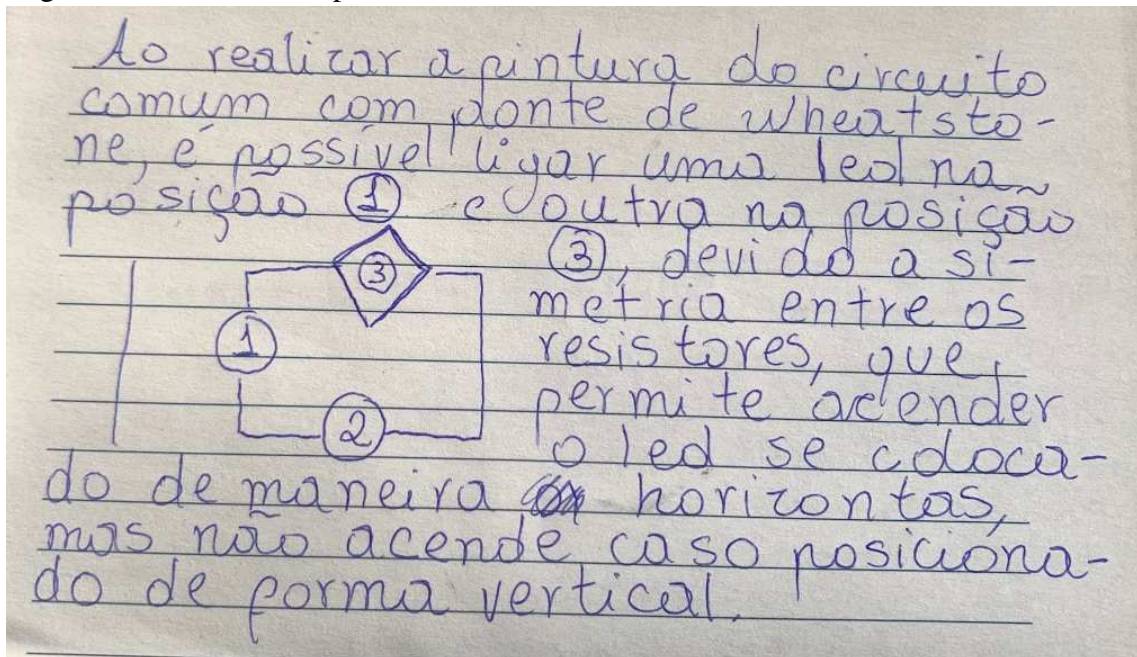 Ao realizar a pintura do circuito
comum com ponte de wheatsto-
ne, é possível ligar uma led na
posição ① e outra na posição
③, devido a si-
metria entre os
resistores, que
permite acender
o led se coloca-
do de maneira horizontas,
mas não acende caso posiciona-
do de forma vertical.
③
①
②